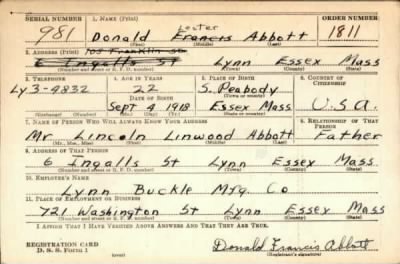 SERIAL NUMBER 1. NAME (Print) ORDER NUMBER
Lester
981 Donald Francis Abbott 1811
(First) (Middle) (Last)
2. ADDRESS (Print) 103 Franklin St
6 Ingalls St Lynn Essex Mass
(Number and street or R. F. D. number) (Town) (County) (State)
3. TELEPHONE 4. AGE IN YEARS 5. PLACE OF BIRTH 6. COUNTRY OF CITIZENSHIP
Ly 3-4832 22 S. Peabody
DATE OF BIRTH (Town or county)
Sept 4 1918 Essex Mass U.S.A.
(Exchange) (Number) (Mo.) (Day) (Yr.) (State or country)
7. NAME OF PERSON WHO WILL ALWAYS KNOW YOUR ADDRESS 8. RELATIONSHIP OF THAT PERSON
Mr Lincoln Linwood Abbott Father
(Mr., Mrs., Miss) (First) (Middle) (Last)
9. ADDRESS OF THAT PERSON
6 Ingalls St Lynn Essex Mass.
(Number and street or R. F. D. number) (Town) (County) (State)
10. EMPLOYER'S NAME
Lynn Buckle Mfg. Co
11. PLACE OF EMPLOYMENT OR BUSINESS
721 Washington St Lynn Essex Mass
(Number and street or R. F. D. number) (Town) (County) (State)
I AFFIRM THAT I HAVE VERIFIED ABOVE ANSWERS AND THAT THEY ARE TRUE.
REGISTRATION CARD
D. S. S. Form 1 (over) Donald Francis Abbott
(Registrant's signature)